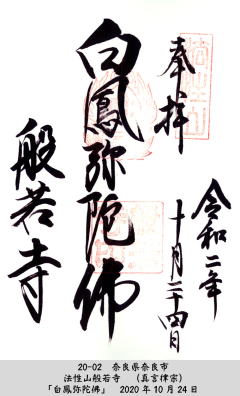 奉拝
白鳳弥陀佛
般若寺
令和二年
十月二十四日
20-02　奈良県奈良市
法性山般若寺　（真言律宗）
「白鳳弥陀佛」　2020年10月24日